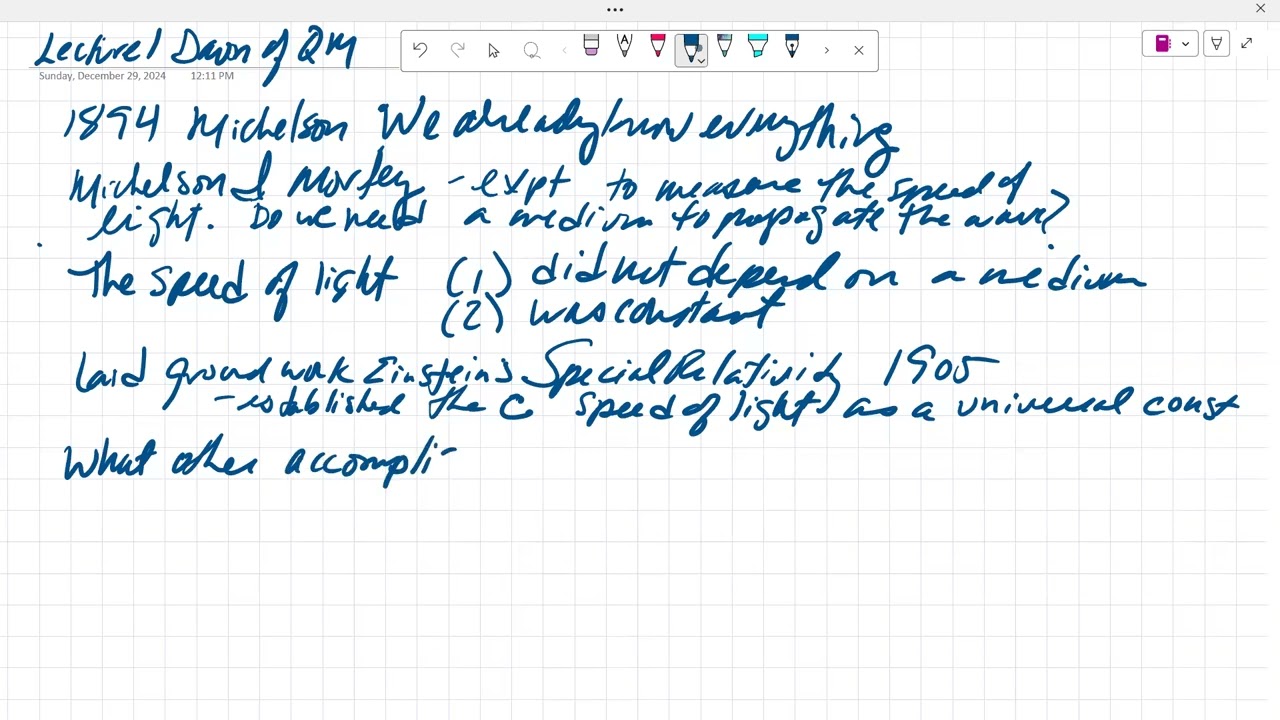 Lecture 1 Dawn of QM
Sunday, December 29, 2024 12:11 PM
1894 Michelson We already know everything
Michelson & Morley - expt to measure the speed of
light. Do we need a medium to propagate the wave?
The speed of light (1) did not depend on a medium
(2) was constant
Laid ground work Einstein's Special Relativity 1905
- established the C speed of light as a universal const
What other accompli